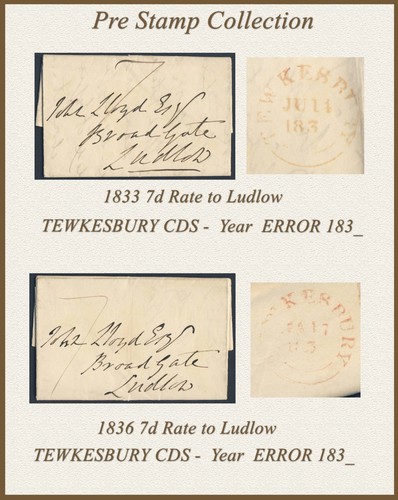 Pre Stamp Collection
7
John Lloyd Esqr
Broad Gate
Ludlow
TEWKESBURY
JU14
183
1833 7d Rate to Ludlow
TEWKESBURY CDS - Year ERROR 183_
7
John Lloyd Esqr
Broad Gate
Ludlow
KESBURY
17
183
1836 7d Rate to Ludlow
TEWKESBURY CDS - Year ERROR 183_